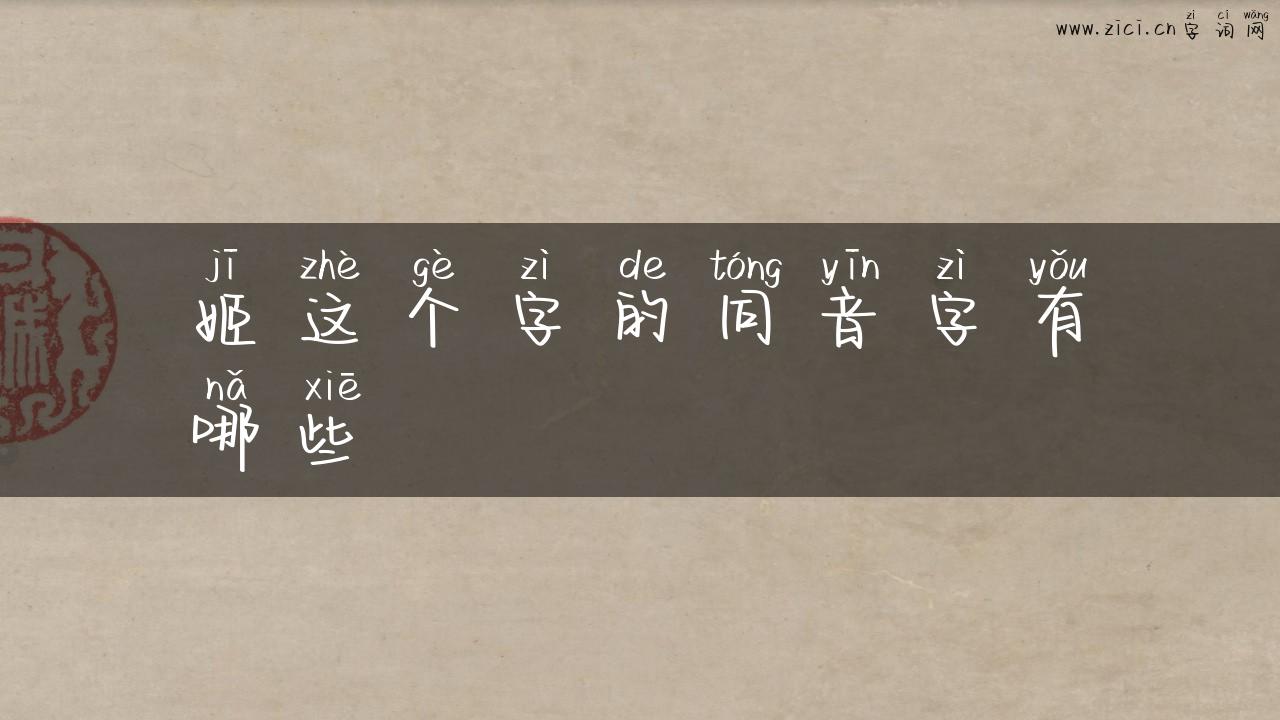 zì cí wǎng
www.zici.cn 字词网
jī zhè gè zì de tóng yīn zì yǒu
姬这个字的同音字有
nǎ xiē
哪些